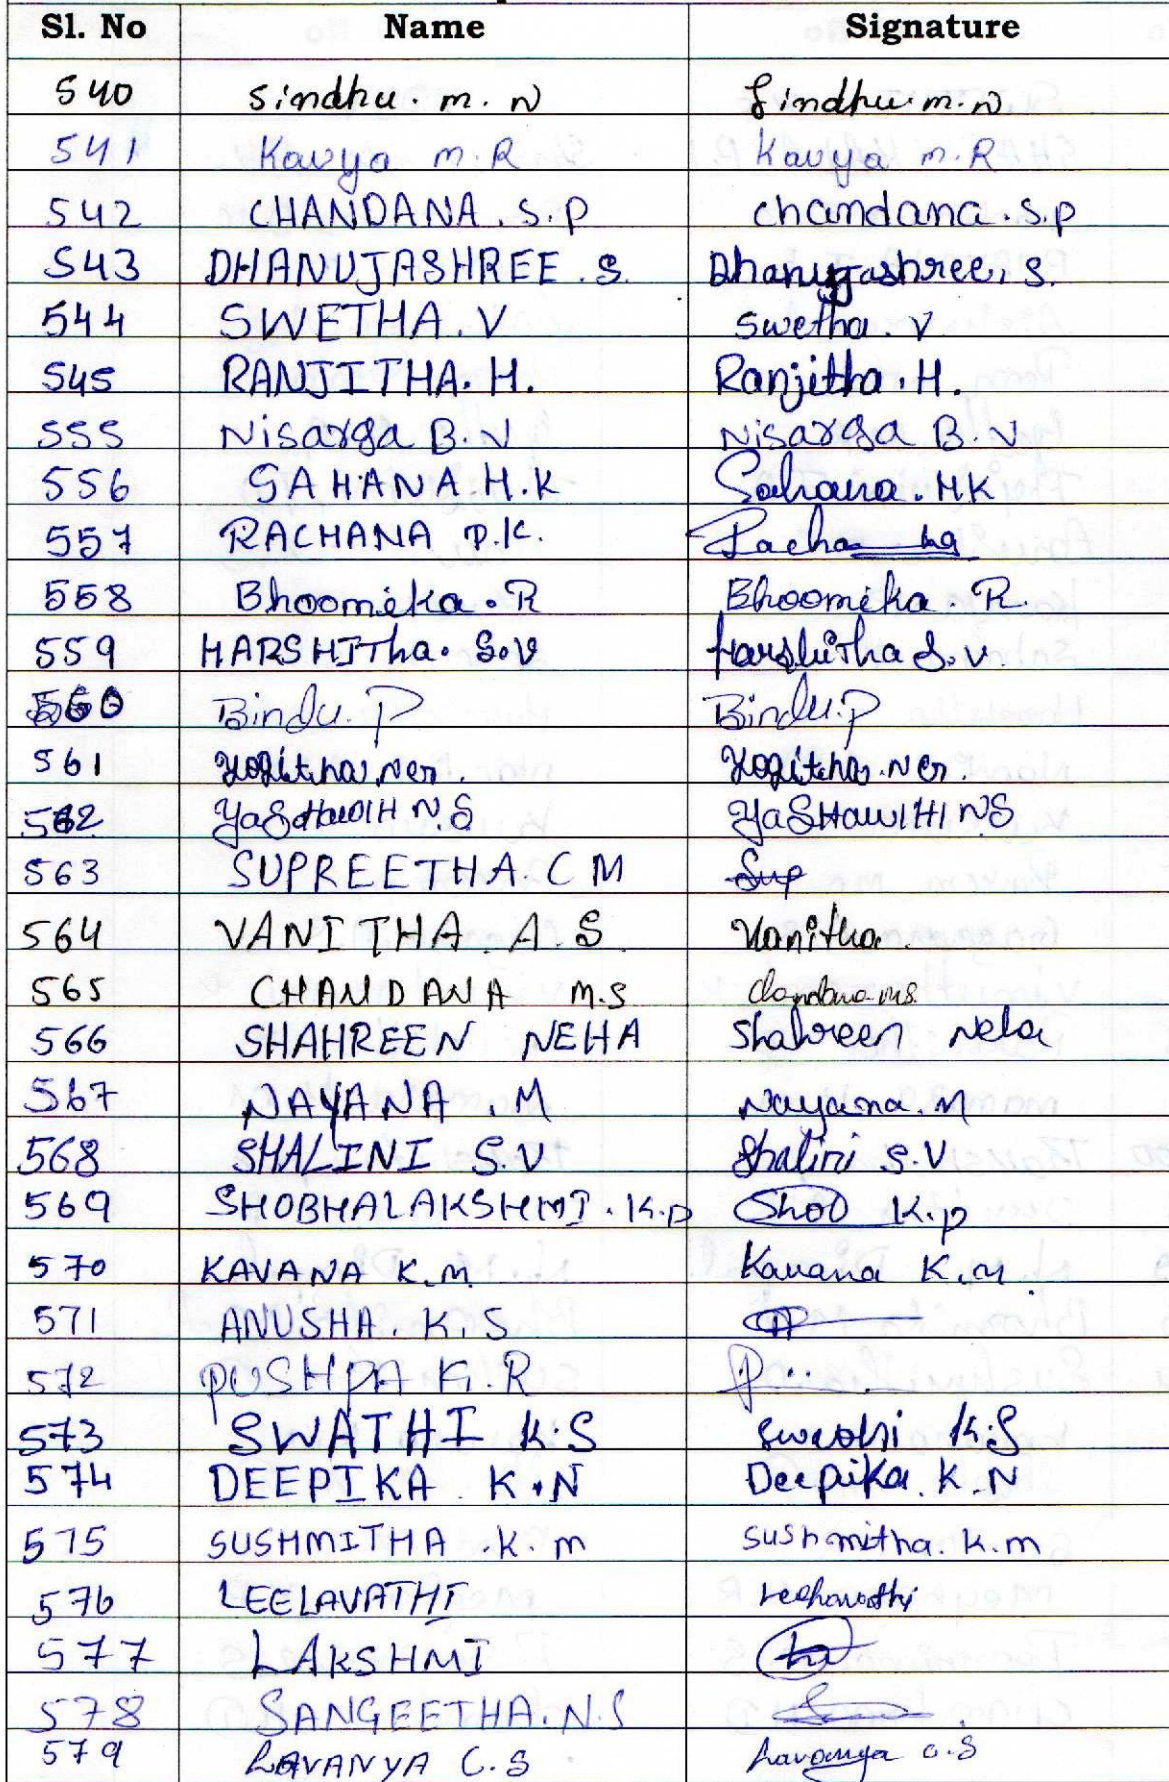 Sl. No Name Signature
540 Sindhu. m. N Sindhu. m. N
541 Kavya m. R Kavya m. R
542 CHANDANA. S. P Chandana. S. P
543 DHANUJASHREE. S. Dhanujashree. S.
544 SWETHA. V Swetha. V
545 RANJITHA. H. Ranjitha. H.
555 Nisarga B. V Nisarga B. V
556 SAHANA. H. K Sahana. HK
557 RACHANA P. K. Racha
558 Bhoomika. R Bhoomika. R.
559 HARSHITha. S. V HarshiTha S. V.
560 Bindu. P Bindu. P
561 Yogitha Yogitha
562 N. S NS
563 SUPREETHA. C M Sup
564 VANITHA. A. S Vanitha.
565 CHANDANA M.S Chandana M.S.
566 SHAHREEN NEHA Shahreen Neha
567 NAYANA. M Nayana. M
568 SHALINI S. V Shalini S. V
569 SHOBHALAKSHMI. K. P Shob K. P
570 KAVANA K. M Kavana K. M.
571 ANUSHA. K. S
572 PUSHPA K. R P
573 SWATHI K. S Swathi K. S
574 DEEPIKA. K. N Deepika. K. N
575 SUSHMITHA. K. m Sushmitha. K. m
576 LEELAVATHI Leelavathi
577 LAKSHMI
578 SANGEETHA. N. S
579 LAVANYA C. S Lavanya C. S